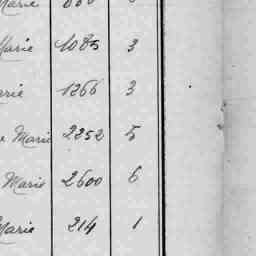 Marie
Marie 1085 3
arie 1266 3
e Marie 2252 5
Marie 2600 6
Marie 214 1